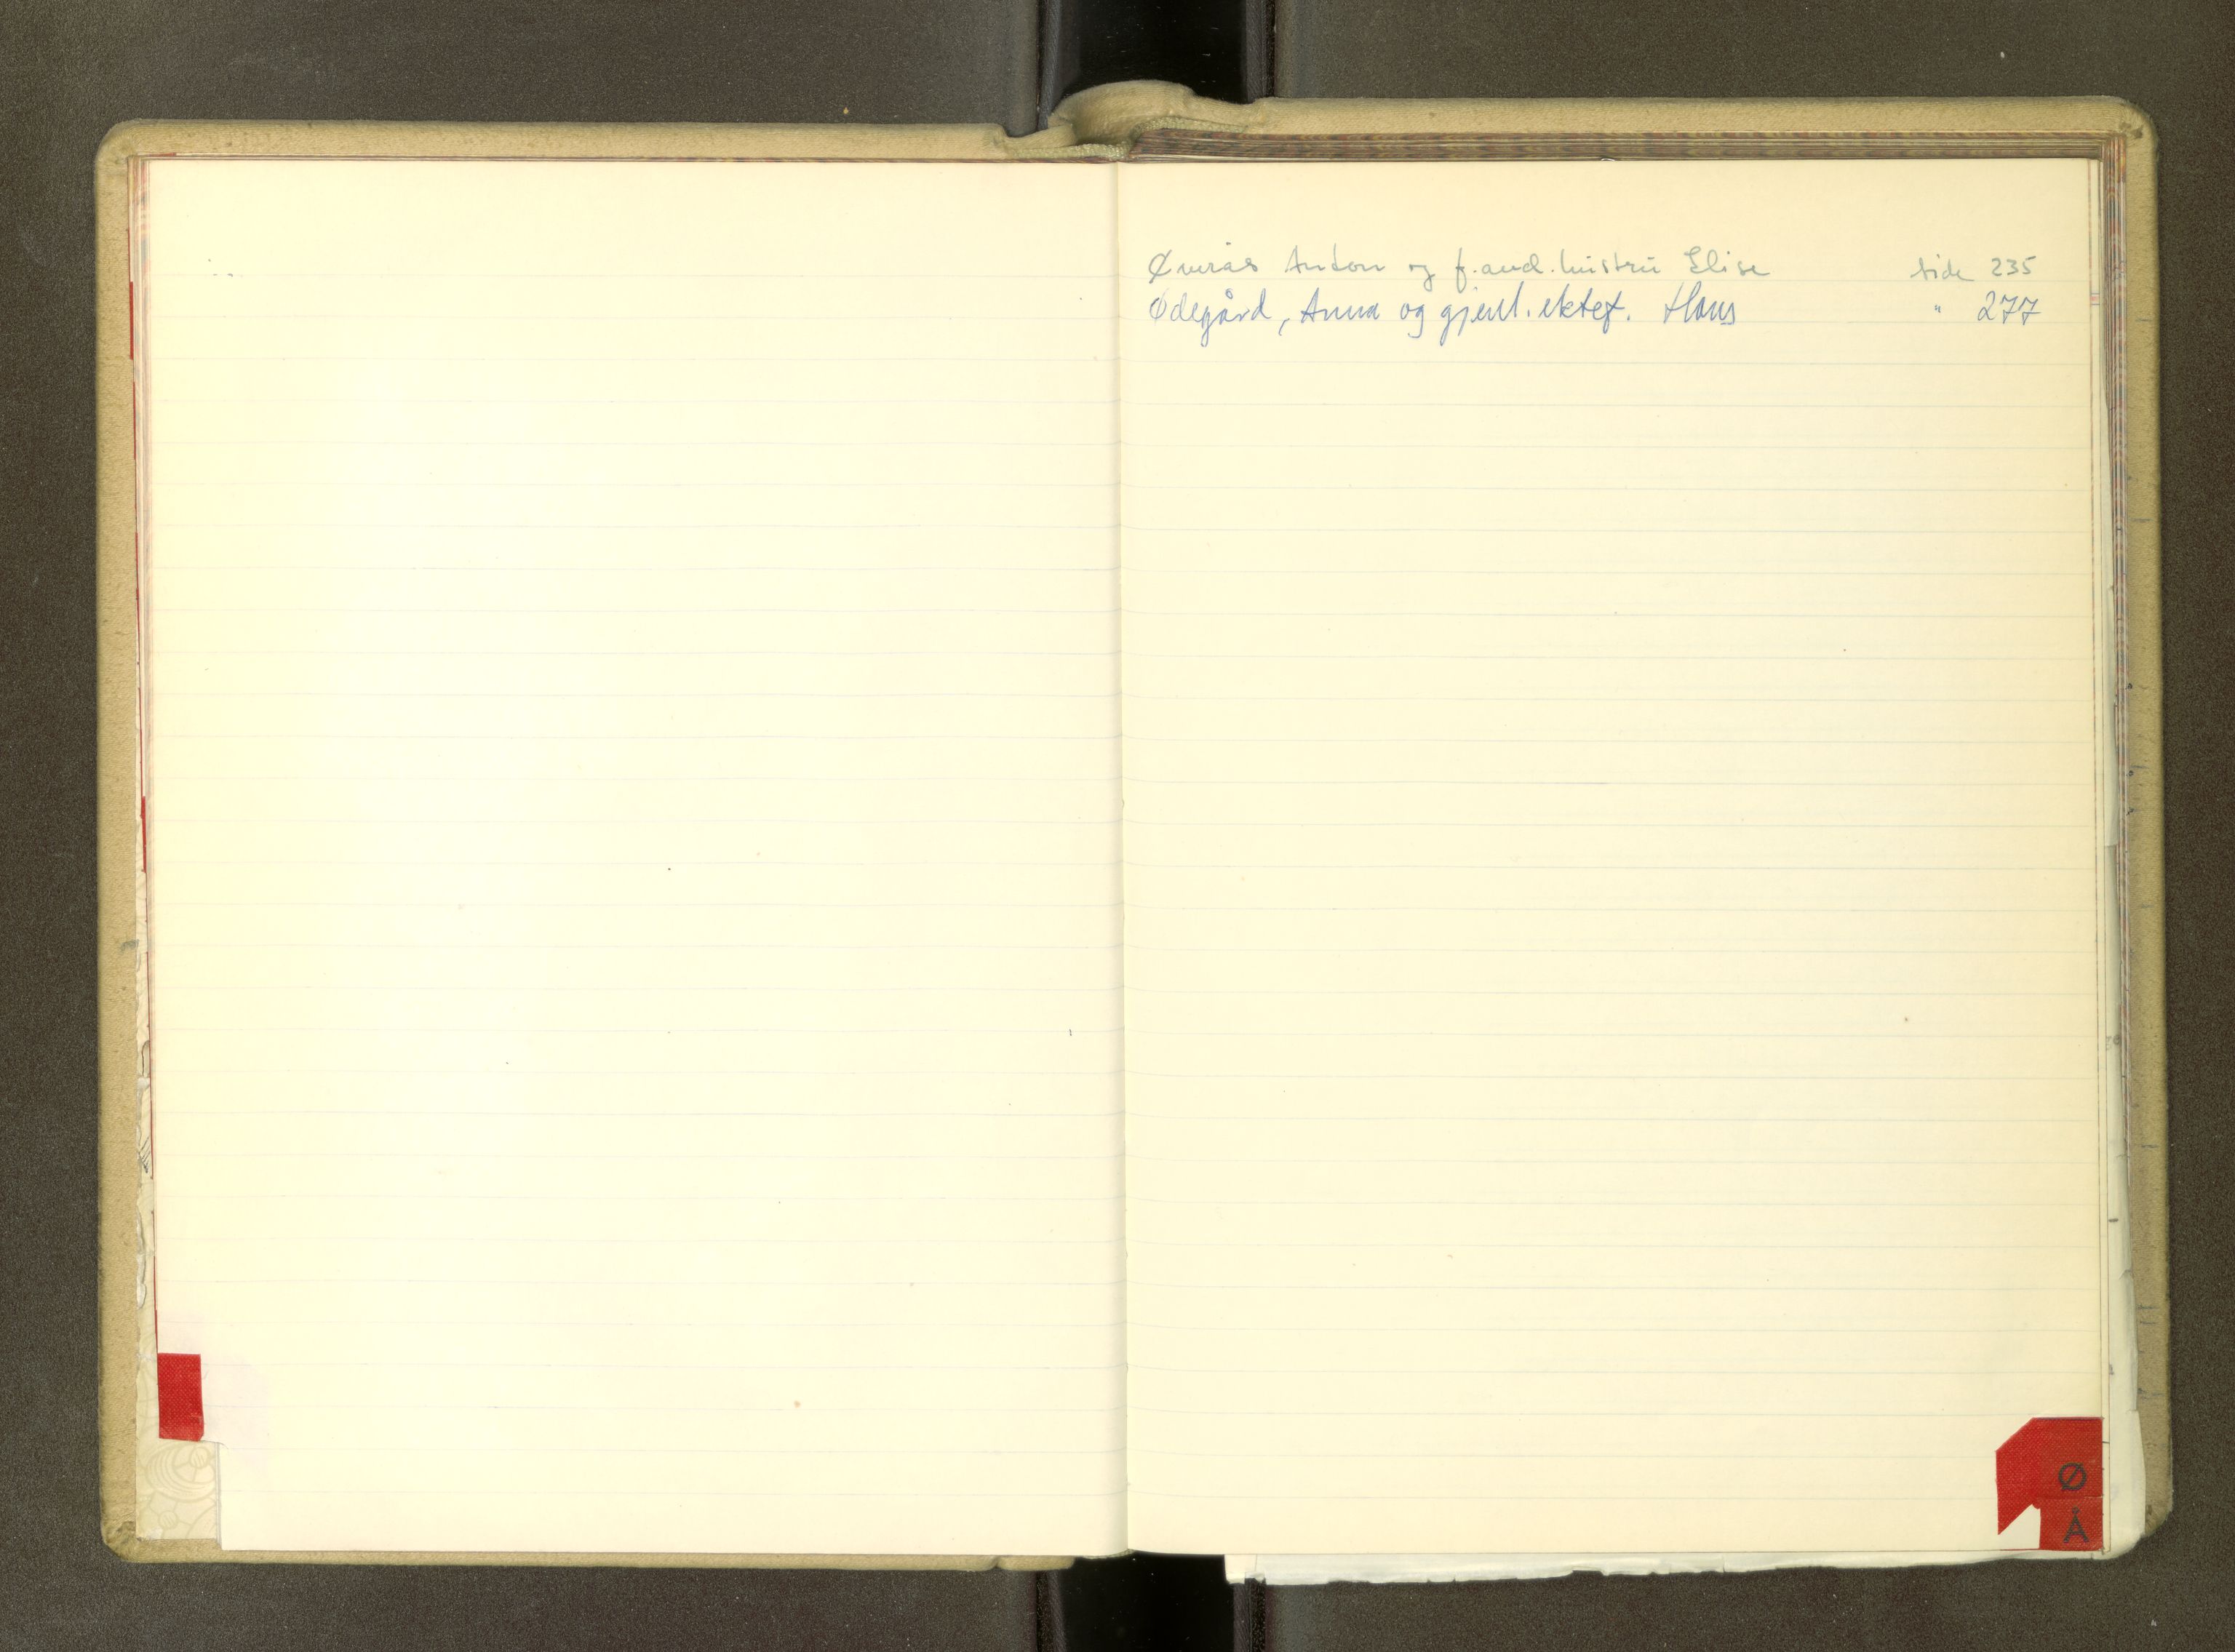 Øverås Anton og f.avd. hustru Elise side 235
Ødegård, Anna og gjenl. ektef. Hans " 277
Ø
Å